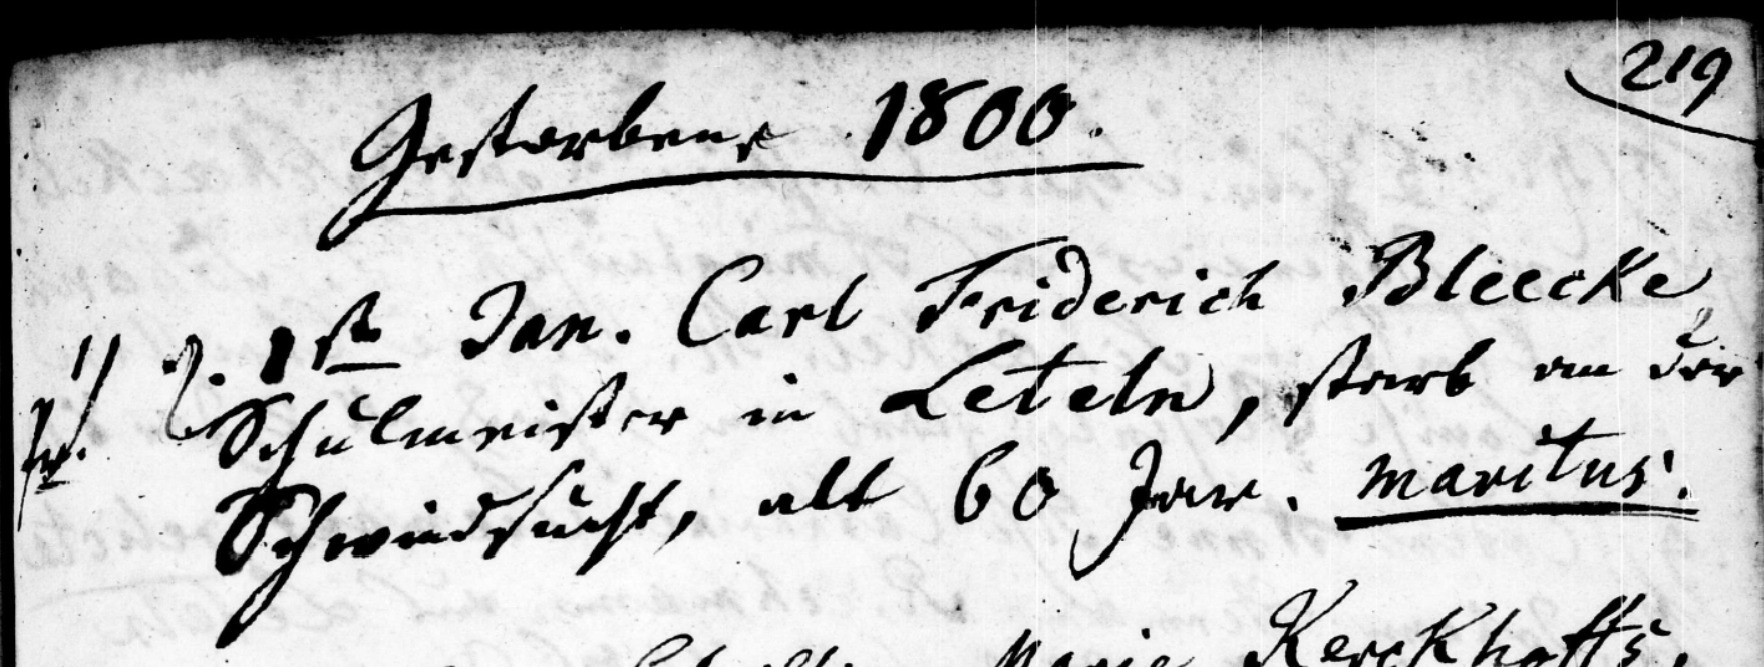 219
Gestorbene 1800.
1) d. 1ste Jan. Carl Friderich Bleecke,
Schulmeister in Leteln, starb an der
Schwindsucht, alt 60 Jar. maritus.
Marie Kerckhoffs,